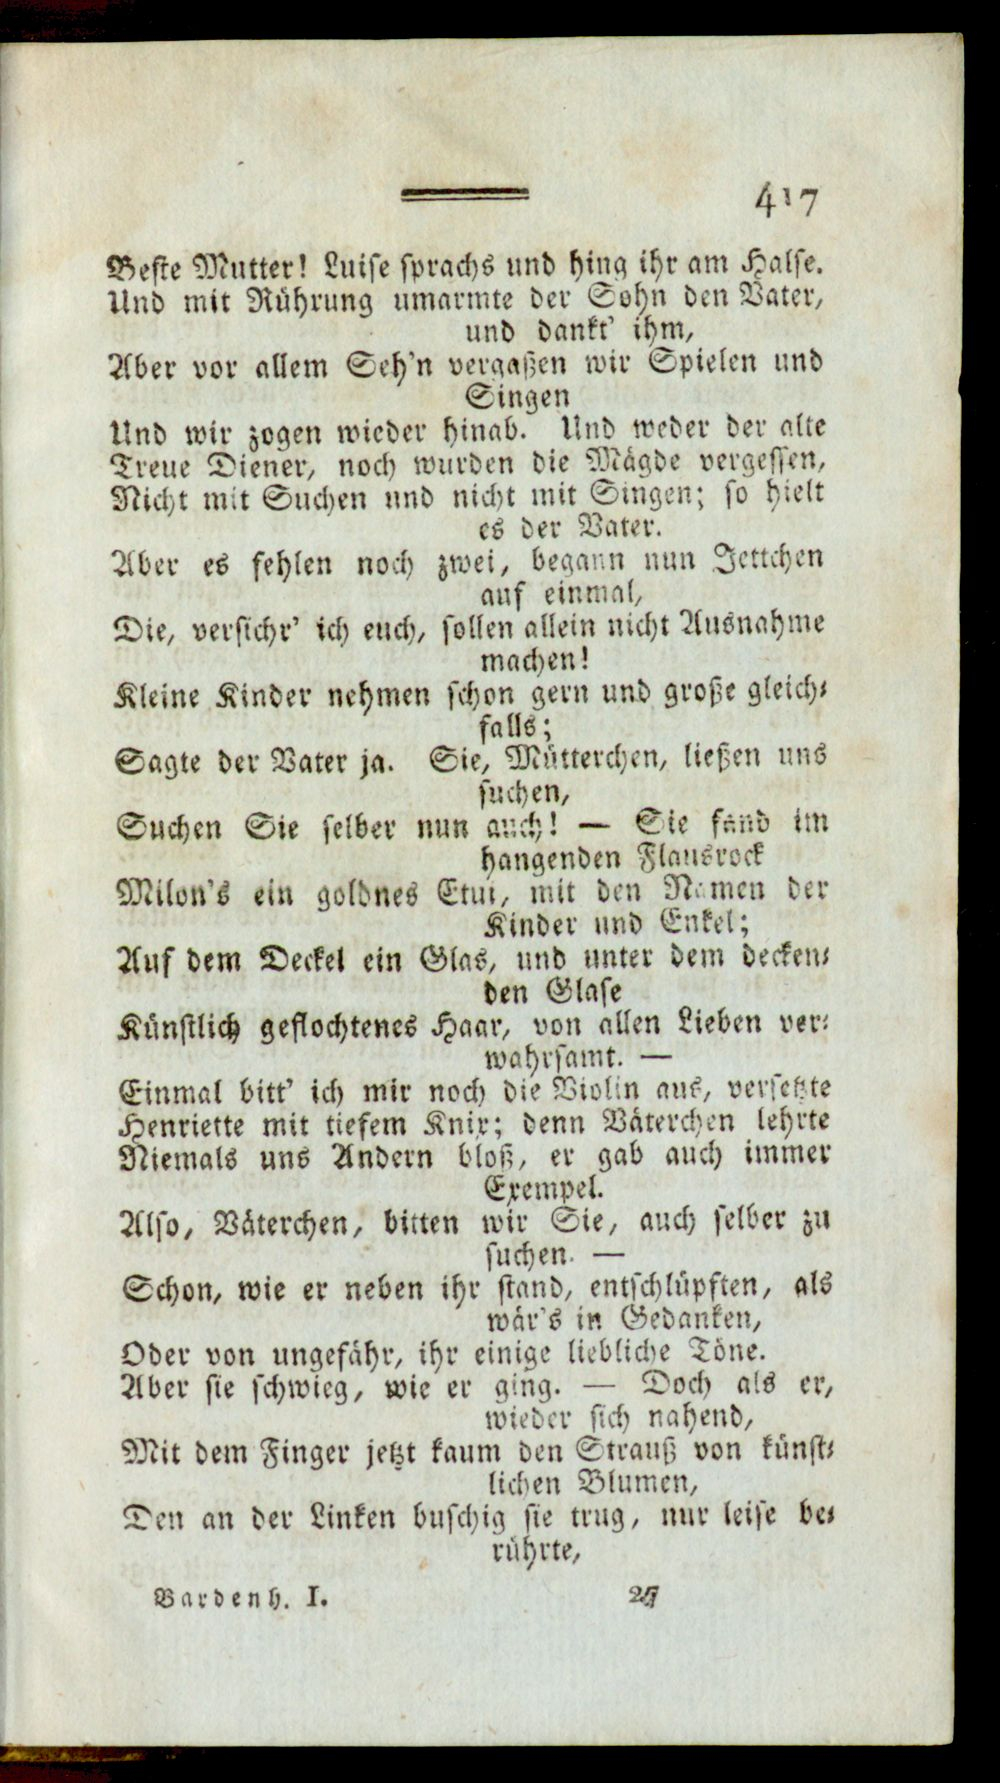 417
Beste Mutter! Luise sprachs und hing ihr am Halse.
Und mit Rührung umarmte der Sohn den Vater,
und dankt' ihm,
Aber vor allem Seh'n vergaßen wir Spielen und
Singen
Und wir zogen wieder hinab. Und weder der alte
Treue Diener, noch wurden die Mägde vergessen,
Nicht mit Suchen und nicht mit Singen; so hielt
es der Vater.
Aber es fehlen noch zwei, begann nun Jettchen
auf einmal,
Die, versichr' ich euch, sollen allein nicht Ausnahme
machen!
Kleine Kinder nehmen schon gern und große gleich-
falls;
Sagte der Vater ja. Sie, Mütterchen, ließen uns
suchen,
Suchen Sie selber nun auch! — Sie fand im
hangenden Flausrock
Milon's ein goldnes Etui, mit den Namen der
Kinder und Enkel;
Auf dem Deckel ein Glas, und unter dem decken-
den Glase
Künstlich geflochtenes Haar, von allen Lieben ver-
wahrsamt. —
Einmal bitt' ich mir noch die Violin aus, versetzte
Henriette mit tiefem Knix; denn Väterchen lehrte
Niemals uns Andern bloß, er gab auch immer
Exempel.
Also, Väterchen, bitten wir Sie, auch selber zu
suchen. —
Schon, wie er neben ihr stand, entschlüpften, als
wär's in Gedanken,
Oder von ungefähr, ihr einige liebliche Töne.
Aber sie schwieg, wie er ging. — Doch als er,
wieder sich nahend,
Mit dem Finger jetzt kaum den Strauß von künst-
lichen Blumen,
Den an der Linken buschig sie trug, nur leise be-
rührte,
Bardenh. I.